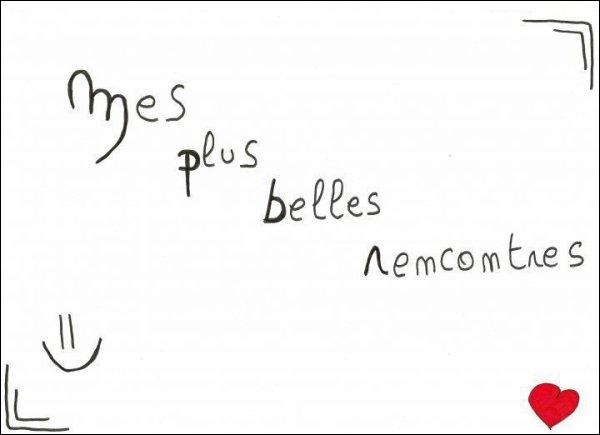 Mes
plus
belles
rencontres